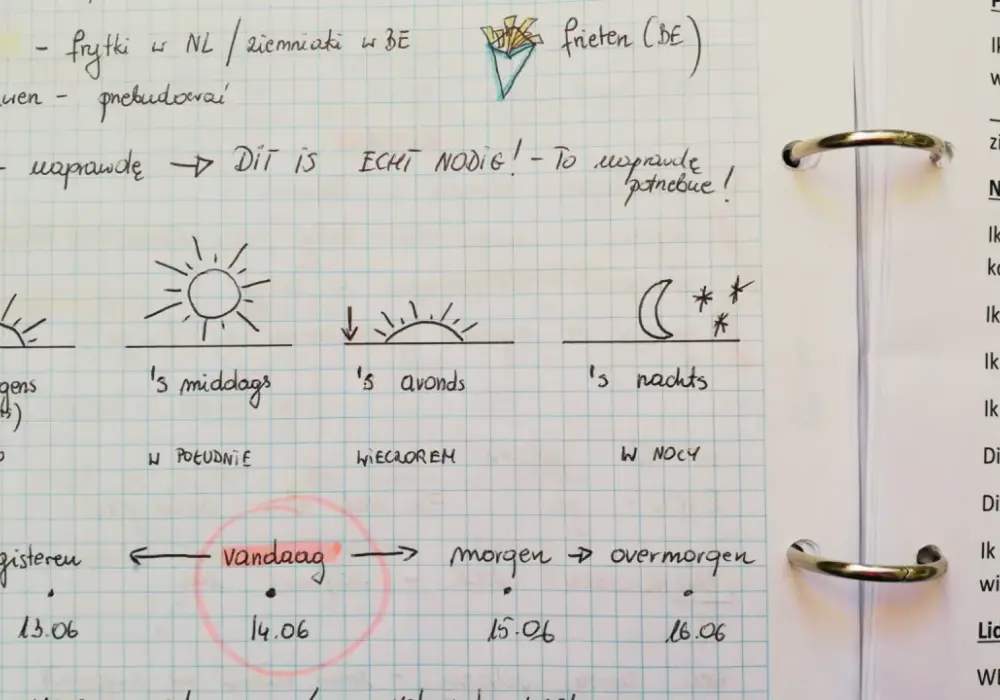 - frytki w NL / ziemniaki w BE
frieten (BE)
wen - przebudować
- naprawdę → DIT IS ECHT NODIG! - To naprawdę
potrzebne!
gens 's middags 's avonds 's nachts
W POŁUDNIE WIECZOREM W NOCY
gisteren ← vandaag → morgen → overmorgen
13.06 14.06 15.06 16.06
Ik
w
zi
N
Ik
ko
Ik
Ik
Ik
Di
Di
Ik
wi
Wl